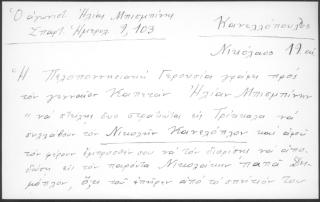 Ὁ ἀγωνιστ. Ἠλίας Μπισμπίνης
Σπαρτ. Ἡμερολ. 9, 103
Κανελλόπουλος
Νικόλαος 19 αἰ
Ἡ Πελοποννησιακή Γερουσία γράφει πρός
τόν γενναῖον Καπετάν Ἠλίαν Μπισμπίνην
"νά στείλῃς δυο στρατιώτας εἰς Τρίκκαλα νά
συλλάβουν τόν Νικολήν Κανελόπλον καί ἀφοῦ
τόν φέρουν ἔμπροσθέν σου νά τόν διορίσῃς νά ἀπο-
δώσῃ εἰς τόν παρόντα Νικολάκην παπᾶ Δη-
μόπλον, ὅ,τι τοῦ ἐπῆρεν ἀπό τό σπήτιόν του